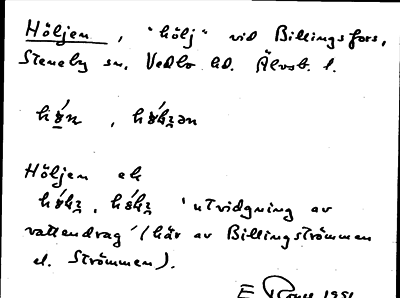 Höljen, "hölj" vid Billingsfors,
Steneby sn, Vedbo hd. Älvsb. l.
Höljen ek
'utvidgning av
vattendrag' (här av Billingströmmen
el. Strömmen).
E 1951